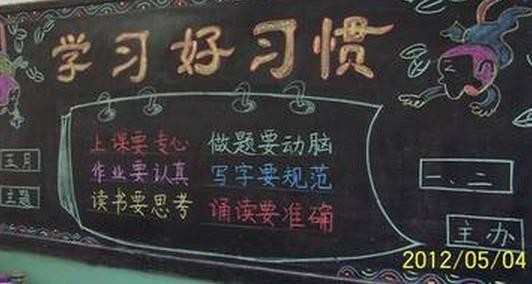 学习好习惯
上课要专心 做题要动脑
作业要认真 写字要规范
读书要思考 诵读要准确
五月
主题
一、二
主办
2012/05/04